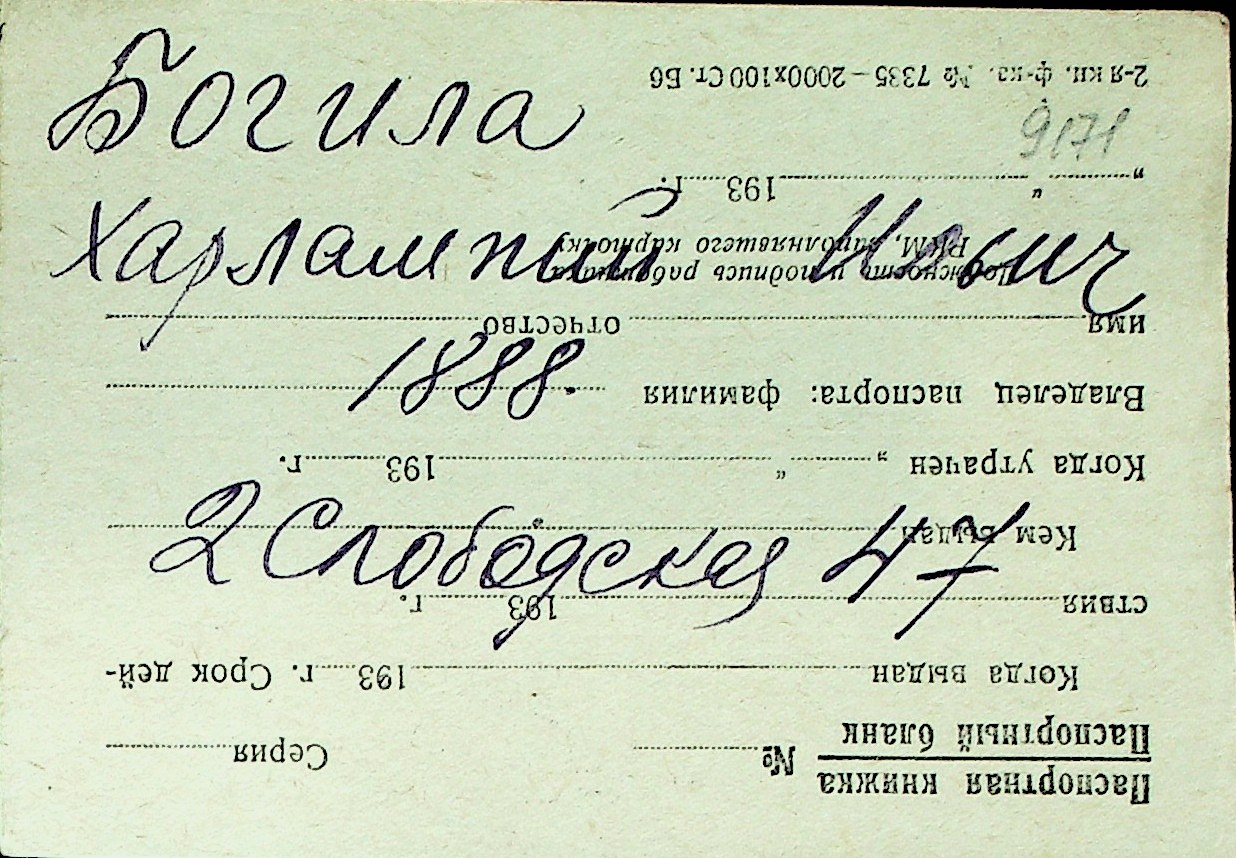 Богила
Харлампий Ильич
1888.
2 Слободская 47
9171
Паспортная книжка
Паспортный бланк № Серия
Когда выдан 193 г. Срок дей-
ствия 193 г.
Кем выдан
Когда утрачен „ “ 193 г.
Владелец паспорта: фамилия
имя отчество
Должность и подпись работника
РКМ, заполнявшего карточку
„ “ 193 г.
2-я кн. ф-ка. № 7335 — 2000х100 Ст. Б6